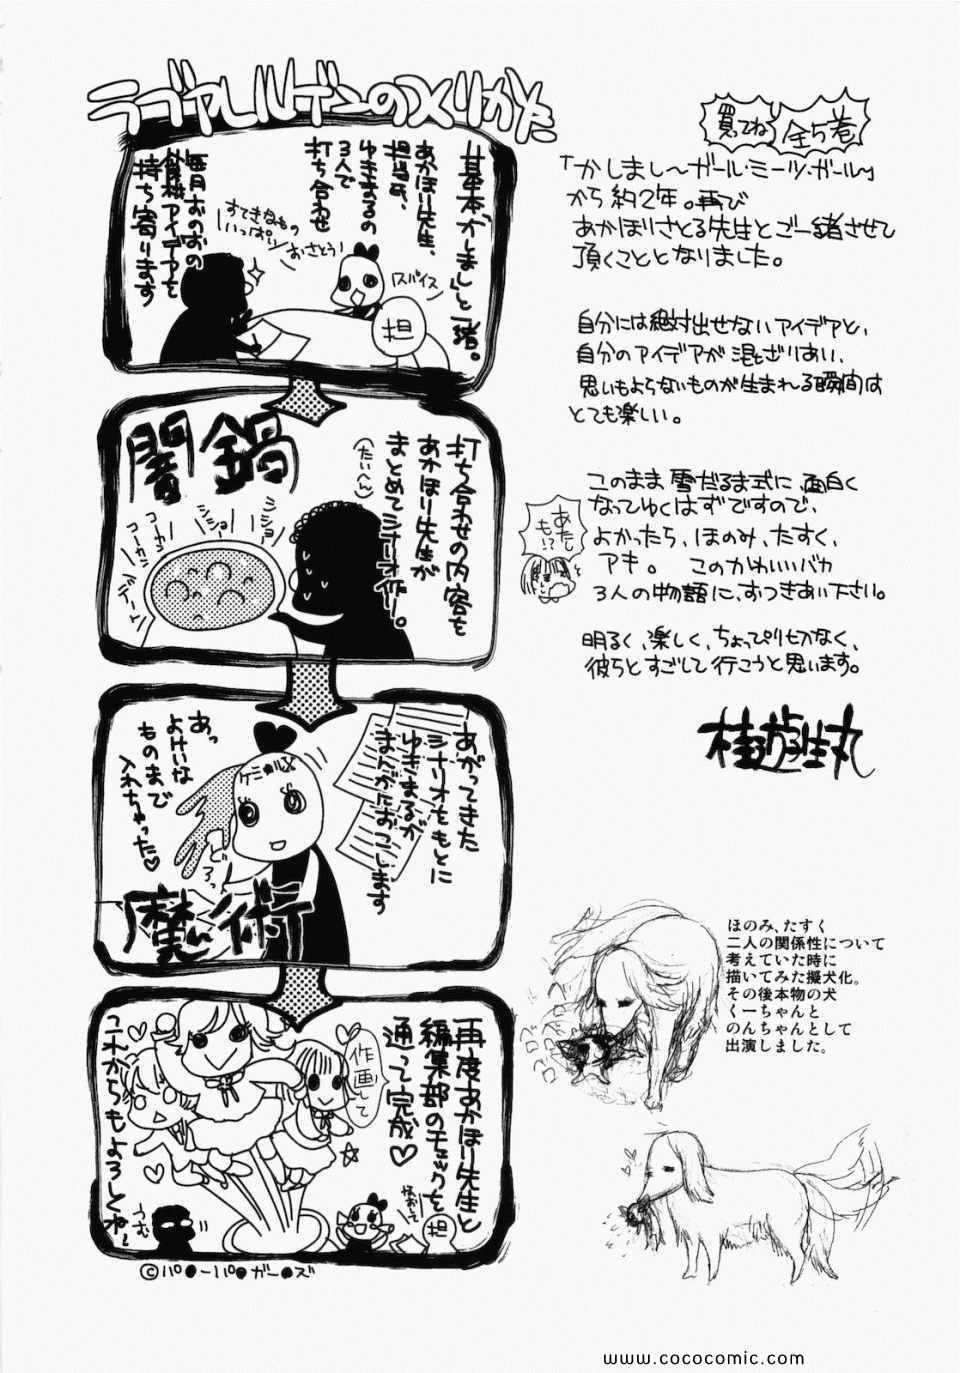 ラブヤルルデンのつくりかた
基本「かしまし」と一緒。
あかほり先生、
担当氏、
ゆきまるの
3人で
打ち合わせ
毎月おのおの
飲桃アイデアを
持ち寄ります
すてきなもの
いっぱい
おさとう
スパイス
担
打ち合わせの内容を
あかほり先生が
まとめてシナリオ作ー。
(たいへん)
闇鍋
あがってきた
シナリオをもとに
ゆきまるが
まんがにおこします
ケミカルX
どろっ
あっ
よけいな
ものまで
入れちゃった♡
魔術
再度あかほり先生と
編集部のチェックを
通って完成♡
作画して
これからもよろしくね。
うむ
担
©パ●ーパ●ガー●ズ
買ってね
全5巻
「かしまし～ガール・ミーツ・ガール」
から約2年。再び
あかほりさとる先生とご一緒させて
頂くこととなりました。
自分には絶対出せないアイデアと、
自分のアイデアが混ざりあい、
思いもよらないものが生まれる瞬間は
とても楽しい。
このまま雪だるま式に、面白く
なってゆくはずですので、
よかったら、ほのみ、たすく、
アキ。このかわいいバカ
3人の物語に、おつきあい下さい。
あたし
も!?
明るく、楽しく、ちょっぴりせつなく、
彼らとすごして行こうと思います。
桂遊生丸
ほのみ、たすく
二人の関係性について
考えていた時に
描いてみた擬犬化。
その後本物の犬
くーちゃんと
のんちゃんとして
出演しました。
www.cococomic.com